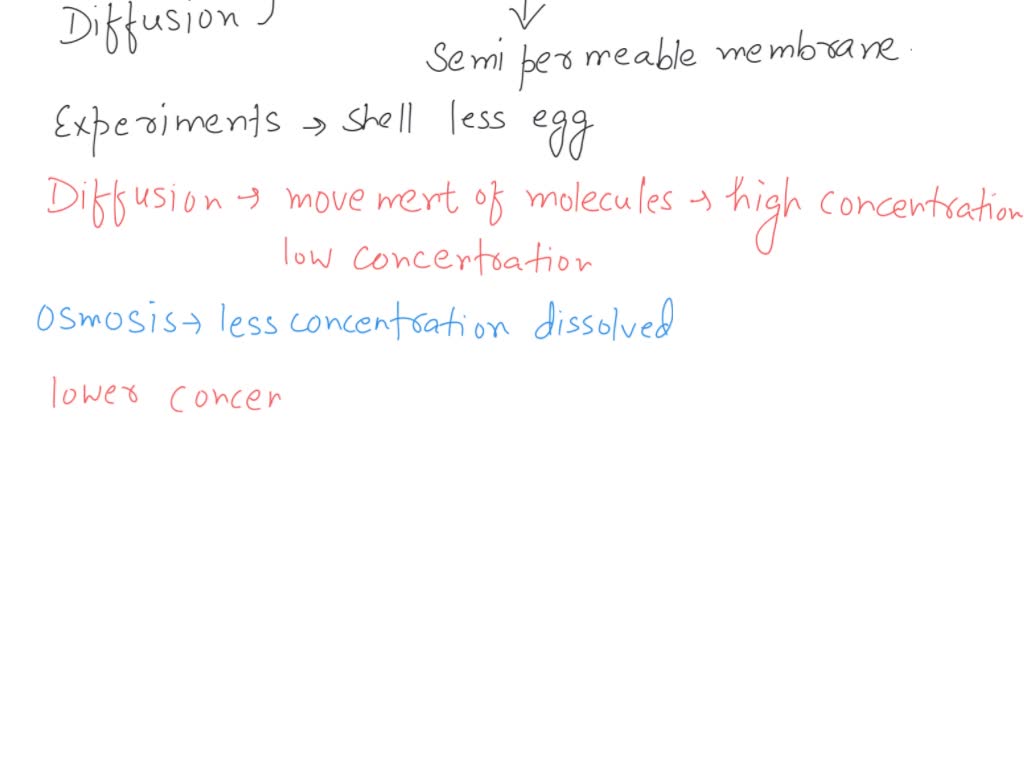 Diffusion
Semi permeable membrane.
Experiments → shell less egg
Diffusion → movement of molecules → high concentration
low concentration
osmosis → less concentration dissolved
lower concen